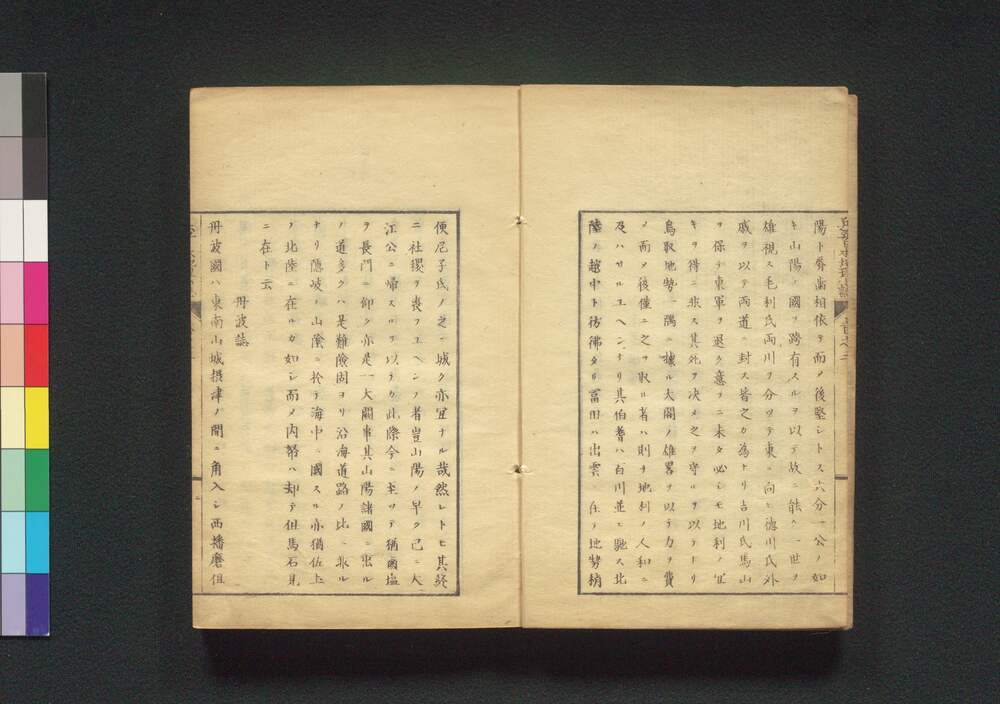 陽ト脣齒相依テ而メ後堅シトス六分一公ノ如
キ山陽ノ國ヲ跨有スルヲ以テ故ニ能ク一世ノ
雄視ス毛利氏兩川ヲ分ツテ東ニ向ヒ德川氏外
戚ヲ以テ兩道ニ封ス皆之カ為トリ吉川氏馬山
ヲ保チ東軍ヲ退ク意フニ未タ必シモ地利ノ宜
キヲ得ニ非ス其死ヲ决メ之ヲ守ルヲ以テトリ
鳥取地勢一隅ニ據ル大閤ノ雄畧ヲ以テ力ヲ費
メ而メ後僅ニ之ヲ取ル者ハ則チ地利ノ人和ニ
及ハサルユヘンナリ其伯耆ハ白川並ヒ馳ス北
陸ノ越中ト彷彿タリ富田ハ出雲ニ在テ地勢稍
便尼子氏ノ之ニ城ク亦宜ナル哉然レトモ其終
ニ社稷ヲ喪フユヘンノ者豈山陽ノ早ク已ニ大
江公ニ帰スルヲ以テカ此際今ニ至ツテ猶國塩
ヲ長門ニ仰ク亦是一大關事其山陽諸國ニ出ル
ノ道多クハ是難險固ヨリ沿海道路ノ比ニ非ル
ナリ隱岐ノ山陰ニ於テ海中ニ國スル亦猶佐土
ノ北陸ニ在ルカ如シ而メ内幣ハ却テ但馬石見
ニ在ト云
丹波誌
丹波國ハ東南山城摂津ノ間ニ角入シ西播磨但